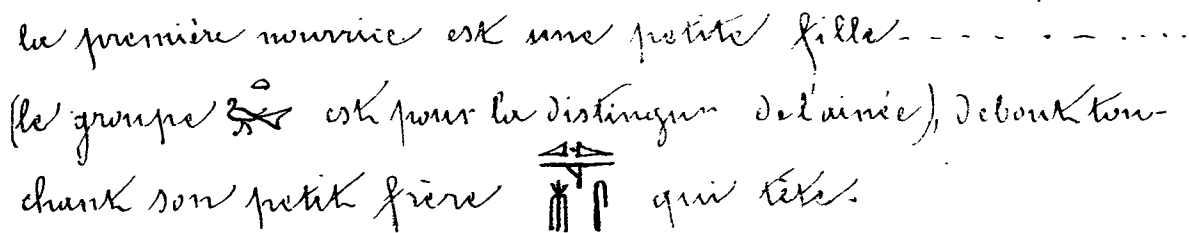 la première nourrice est une petite fille - - - - . - . . . .
(le groupe est pour la distinguer de l'ainée), debout tou-
chant son petit frère qui tête.